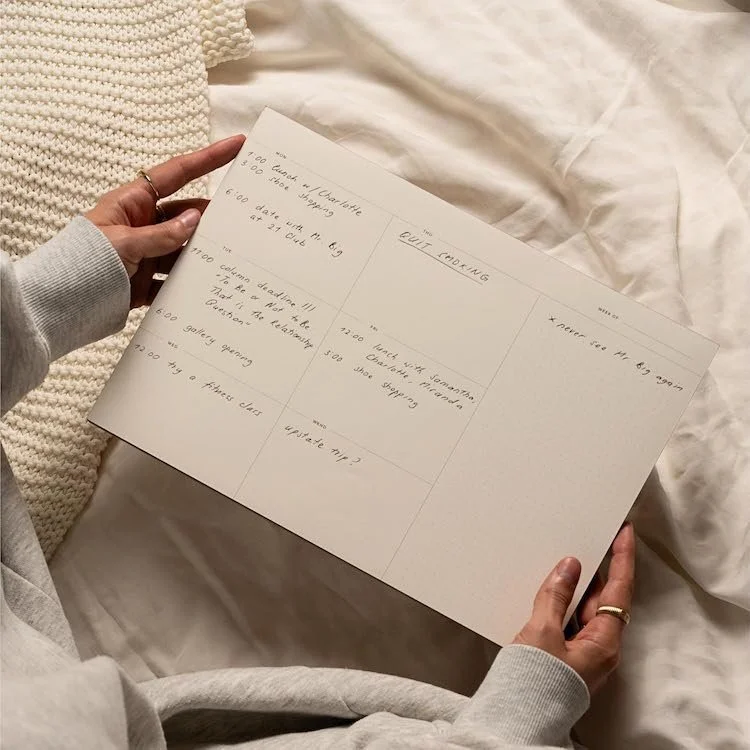 MON
1:00 lunch w/ Charlotte
3:00 shoe shopping
6:00 date with Mr. Big
at 21 Club
TUE
11:00 column deadline !!!
"To Be or Not to Be
That is the Relationship
Question"
6:00 gallery opening
WED
12:00 try a fitness class
THU
QUIT SMOKING
FRI
12:00 lunch with Samantha,
Charlotte, Miranda
5:00 shoe shopping
WKND
upstate trip?
WEEK OF
x never see Mr Big again